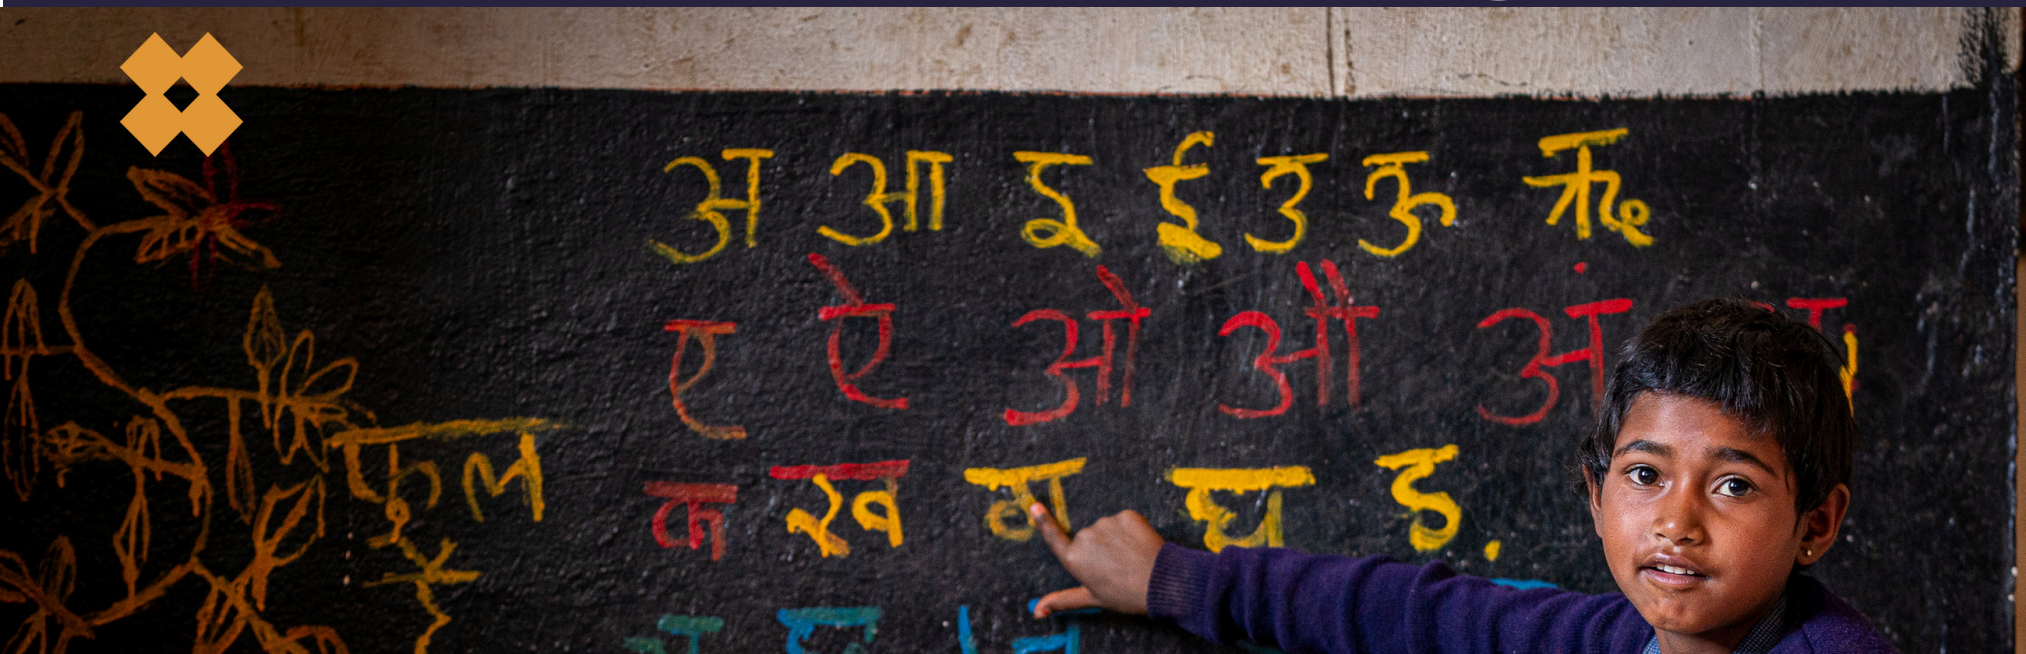 अ आ इ ई उ ऊ ऋ
ए ऐ ओ औ अं
फूल
क ख ग घ ङ